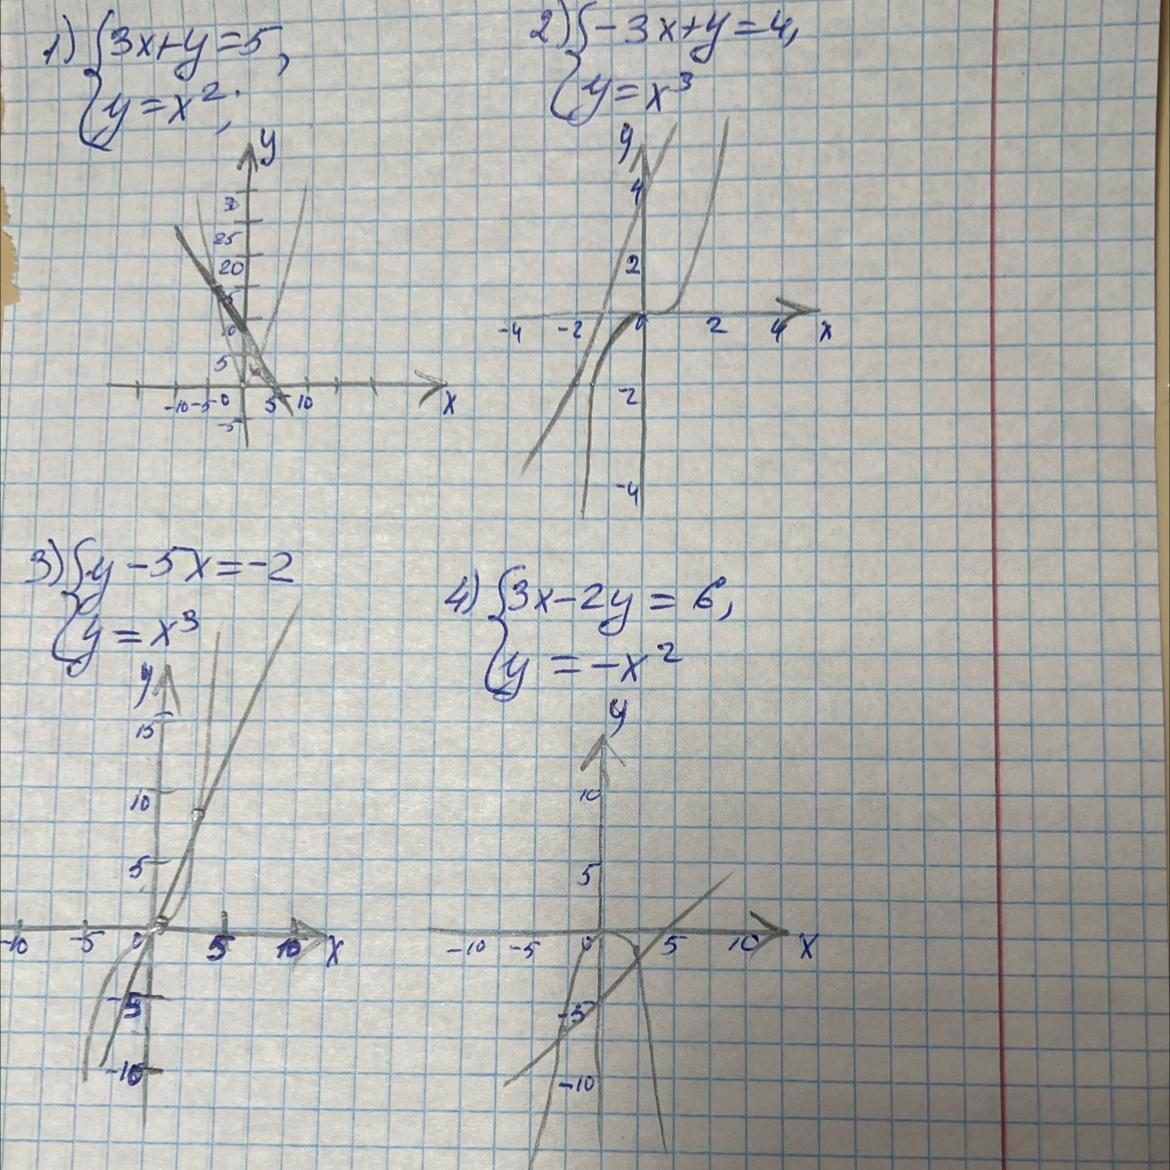 1) {3x+y=5,
y=x²;
y
30
25
20
5
0
5
-10 -5 0 5 10 x
-5
2) {-3x+y=4,
y=x³
y
4
2
-4 -2 0 2 4 x
-2
-4
3) {y-5x=-2
y=x³
y
15
10
5
-10 -5 0 5 10 x
-5
-10
4) {3x-2y=6,
y=-x²
y
10
5
-10 -5 0 5 10 x
-5
-10